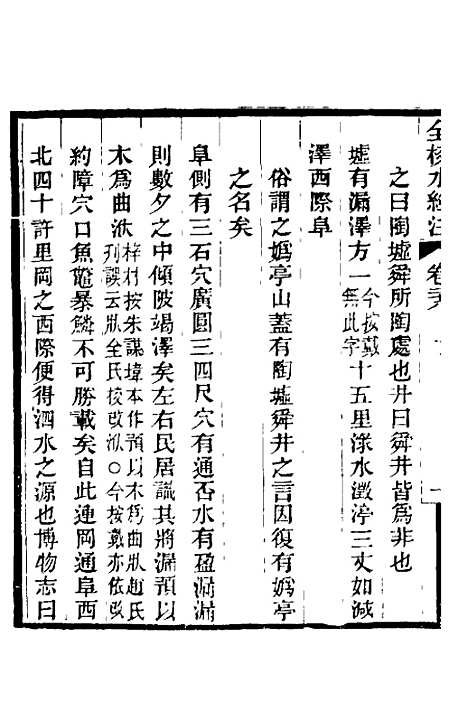 全校水經注 卷
之曰陶墟舜所陶處也井曰舜井皆爲非也
墟有漏澤方一今按戴無此字十五里淥水澂渟三丈如減
澤西際阜
俗謂之嬀亭山蓋有陶墟舜井之言因復有嬀亭
之名矣
阜側有三石穴廣圓三四尺穴有通否水有盈漏漏
則數夕之中傾陂竭澤矣左右民居識其將漏預以
木爲曲洑梓材按朱謀㙔本作預以木爲曲狀趙氏刊誤云狀全氏校改洑○今按戴亦依改
約障穴口魚鼈暴鱗不可勝載矣自此連岡通阜西
北四十許里岡之西際便得泗水之源也博物志曰